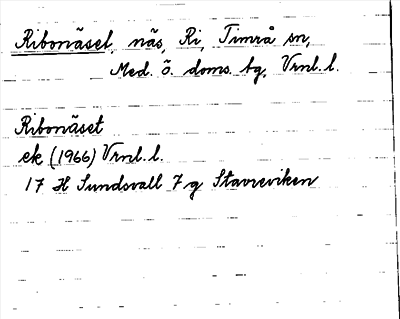 Ribonäset, näs, Ri, Timrå sn,
Med. ö. doms. bg, Vrnl. l.
Ribonäset
ek (1966) Vrnl. l.
17 H Sundsvall 7 g Stavreviken